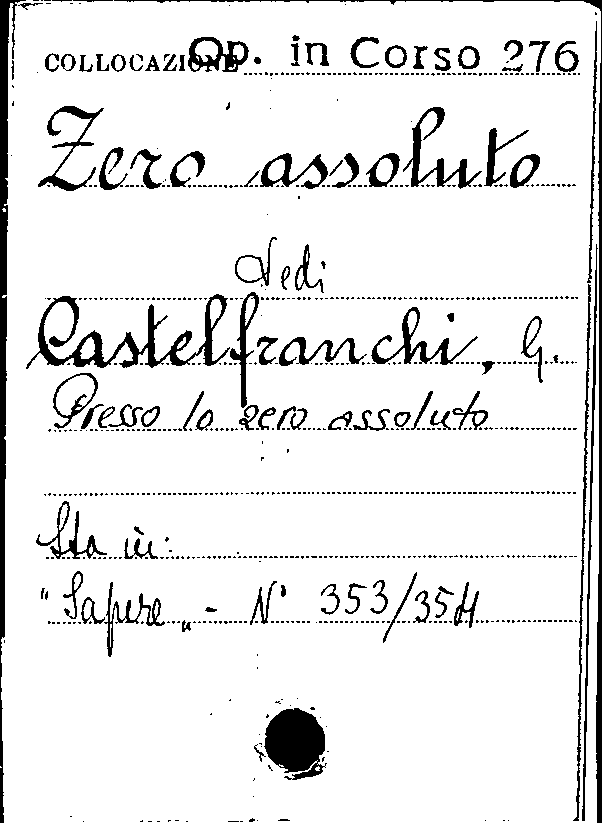 COLLOCAZIONE Op. in Corso 276
Zero assoluto
Vedi
Castelfranchi, G.
Presso lo zero assoluto
Sta in:
"Sapere" - N° 353/354